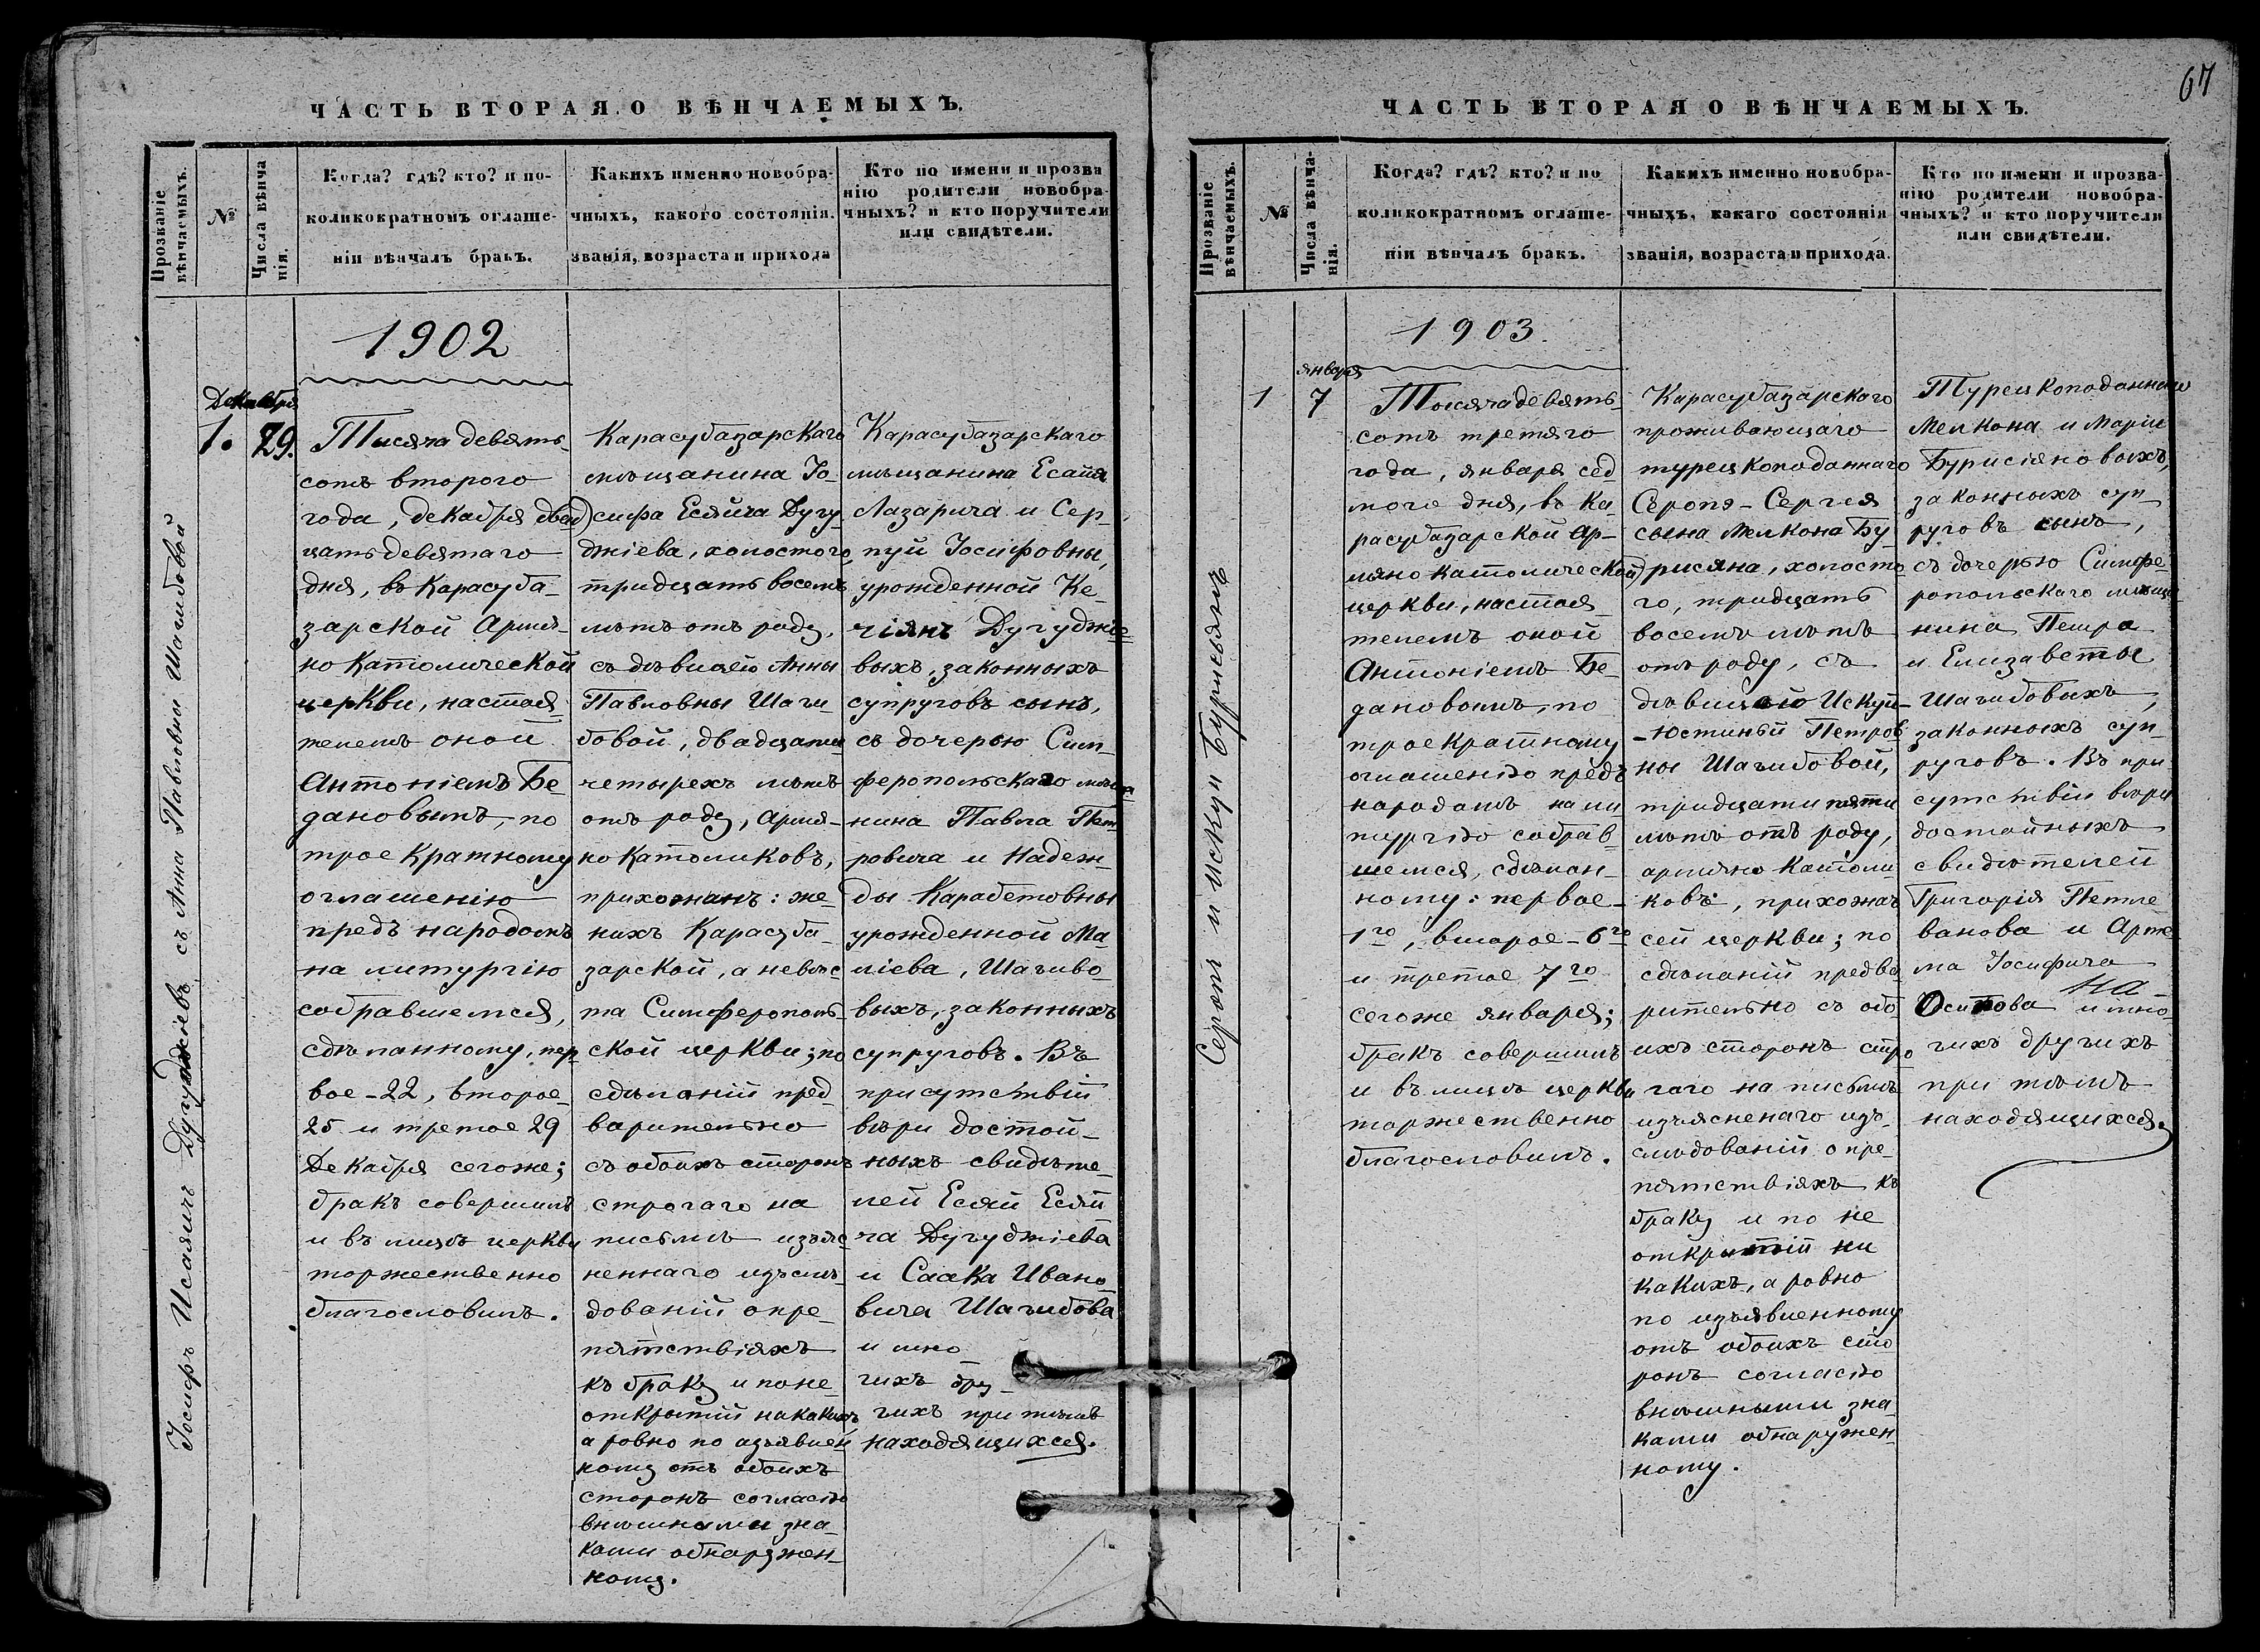 67
ЧАСТЬ ВТОРАЯ О ВѢНЧАЕМЫХЪ.
Прозваніе
вѣнчаемыхъ.
№
Числа вѣнча
нія.
Когда? гдѣ? кто? и по-
коликократномъ оглаше-
ніи вѣнчалъ бракъ.
Какихъ именно новобра-
чныхъ, какого состоянія.
званія, возраста и прихода
Кто по имени и прозва
нію родители новобра-
чныхъ? и кто поручители
или свидѣтели.
Іосифъ Исаяичъ Дугуджіевъ съ Анна Павловны Шагибовой
Декабря
1.
29.
1902
Тысяча девять-
сотъ второго
года, декабря двад
цать девятаго
дня, въ Карасуба-
зарской Армя-
но Католической
церкви, настоя-
телемъ оной
Антоніемъ Бе-
дановымъ, по
трое кратному
оглашенію
предъ народомъ
на литургію
собравшемся,
сдѣланному, пер
вое - 22, второе-
25 и третое 29
Декабря сегоже;
бракъ совершилъ
и въ лицѣ церкви
торжественно
благословилъ.
Карасубазарскаго
мѣщанина Іо-
сифа Есяича Дугу
джіева, холостого,
тридцать восемь
лѣтъ отъ роду,
съ дѣвицею Анны
Павловны Шаги-
бовой, двадцати
четырехъ лѣтъ
отъ роду, Армя-
но Католиковъ,
прихожанъ: же-
нихъ Карасуба-
зарской, а невѣс
та Симферополь-
ской церкви; по
сдѣланій пред-
варительно
съ обоихъ сторонъ
строгаго на
письмѣ изъяс
неннаго изъслѣ-
дованій о пре-
пятствіяхъ
къ браку и по не-
открытій накакихъ,
а ровно по изъявлен
ному отъ обоихъ
сторонъ согласію
внѣшними зна-
ками обнаружен-
ному.
Карасубазарскаго
мѣщанина Есаия
Лазарича и Сер-
пуй Іосифовны,
урожденной Ке-
чіянъ Дугуджіе-
выхъ, законныхъ
супруговъ сынъ,
съ дочерью Сим-
феропольскаго мѣща
нина Павла Пет
ровича и Надеж-
ды Карабетовны
урожденной Ма-
ліева, Шагибо-
выхъ, законныхъ
супруговъ. Въ
присутствіи
вѣри достой-
ныхъ свидѣте-
лей Есяи Есяи
ча Дугуджіева
и Саака Ивано
вича Шагибова
и мно
гихъ дру-
гихъ при томъ
находящихся.
ЧАСТЬ ВТОРАЯ О ВѢНЧАЕМЫХЪ.
Прозваніе
вѣнчаемыхъ.
№
Числа вѣнча-
нія.
Когда? гдѣ? кто? и по
коликократномъ оглаше-
ніи вѣнчалъ бракъ.
Какихъ именно новобра-
чныхъ, какаго состоянія
званія, возраста и прихода.
Кто по имени и прозва-
нію родители новобра-
чныхъ? и кто поручители
или свидѣтели.
1
января
7
1903.
Тысяча девять-
сотъ третяго
года, января сед
мого дня, въ Ка-
расубазарской Ар-
мяно Католической
церкви, настоя-
телемъ оной
Антоніемъ Бе-
дановымъ, по
трое кратному
оглашенію предъ
народомъ на ли
тургію собрав
шемся, сдѣлан-
ному: первое-
1го, второе - 6го
и третое 7го
сегоже января;
бракъ совершилъ
и въ лицѣ церкви
торжественно
благословилъ.
Карасубазарскаго
проживающаго
турецкоподаннаго
Серопэ - Сергея
сына Мелкона Бу-
рисяна, холосто
го, тридцать
восемь лѣтъ
отъ роду, съ
дѣвицею Искуй-
-Юстиньй Петров
ны Шагибовой,
тридцати пяти
лѣтъ отъ роду,
армяно Католи
ковъ, прихожанъ
сей церкви; по
сдѣланій предва
рительно съ обо
ихъ сторонъ стро
гаго на письмѣ
изъясненаго изъ-
слѣдованій о пре-
пятствіяхъ къ
браку и по не
открытій ни
какихъ, а ровно
по изъявленному
отъ обоихъ сто
ронъ согласію
внѣшными зна-
ками обнаружен-
ному.
Турецкоподаннаго
Мелкона и Маріи
Бурисіяновыхъ,
законныхъ суп
руговъ сынъ,
съ дочерью Симфе
ропольскаго мѣща
нина Петра
и Елизаветы
Шагибовыхъ,
законныхъ суп-
руговъ. Въ при
сутствіи вѣри
достойныхъ
свидѣтелей
Григорія Петле
ванова и Арте
ма Іосифича
Осипова и мно-
гихъ другихъ
при томъ
находящихся.